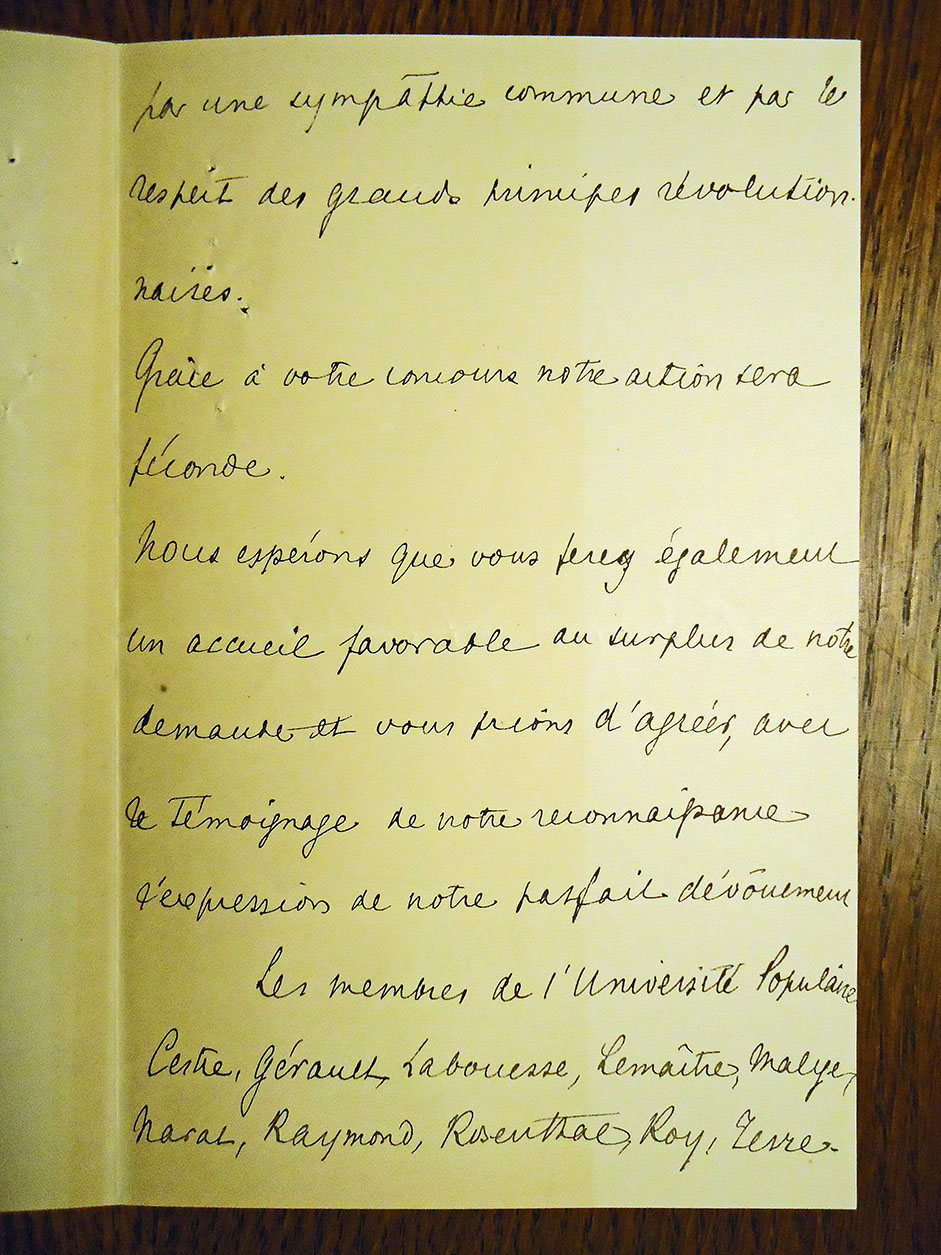 par une sympathie commune et par le
respect des grands principes révolution-
naires.
Grâce à votre concours notre action sera
féconde.
Nous espérons que vous ferez également
un accueil favorable au surplus de notre
demande et vous prions d'agréer, avec
le témoignage de notre reconnaissance
l'expression de notre parfait dévouement
Les membres de l'Université Populaire
Cestre, Gérault, Labouesse, Lemaître, Malye,
Narat, Raymond, Rosenthal, Roy, Terre.